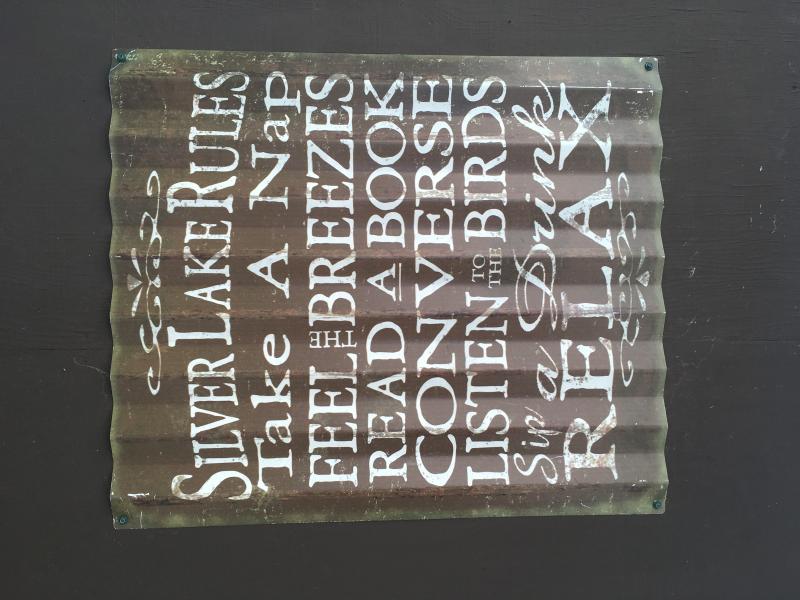 SILVER LAKE RULES
Take A Nap
FEEL THE BREEZES
READ A BOOK
CONVERSE
LISTEN TO THE BIRDS
Sip a Drink
RELAX